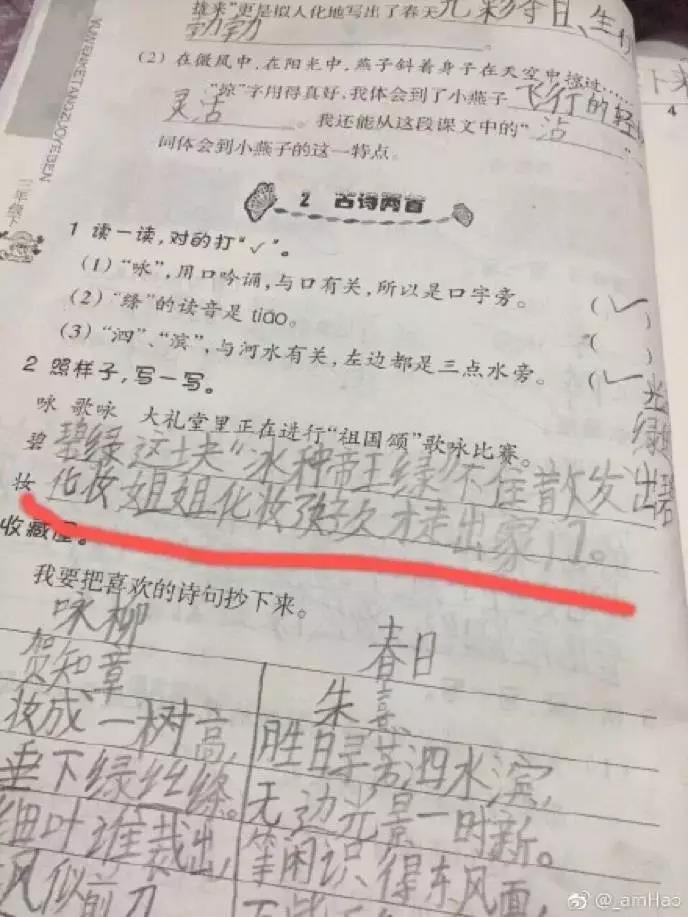 雄来”更是似人化地写出了春天光彩夺目、生机
勃勃。
(2) 在微风中,在阳光中,燕子斜着身子在天空中掠过……
“掠”字用得真好,我体会到了小燕子飞行的轻
灵活。我还能从这段课文中的“沾”
词体会到小燕子的这一特点。
XUNTENKETANGZUOYEBEN
三年级下
下来
4
2 古诗两首
1 读一读,对的打“✓”。
(1)“咏”,用口吟诵,与口有关,所以是口字旁。 (✓)
(2)“绦”的读音是 tiāo。 ( )
(3)“泗”、“滨”,与河水有关,左边都是三点水旁。 (✓)
2 照样子,写一写。
咏 歌咏 大礼堂里正在进行“祖国颂”歌咏比赛。
碧 碧绿 这块“冰种帝王绿”不住散发出碧
绿 光
妆 化妆 姐姐化妆了好久才走出家门。
收藏屋。
我要把喜欢的诗句抄下来。
咏柳
贺知章
妆成一树高,
垂下绿丝绦。
细叶谁裁出,
风似剪刀
春日
朱熹
胜日寻芳泗水滨,
无边光景一时新。
等闲识得东风面,
@_amHao